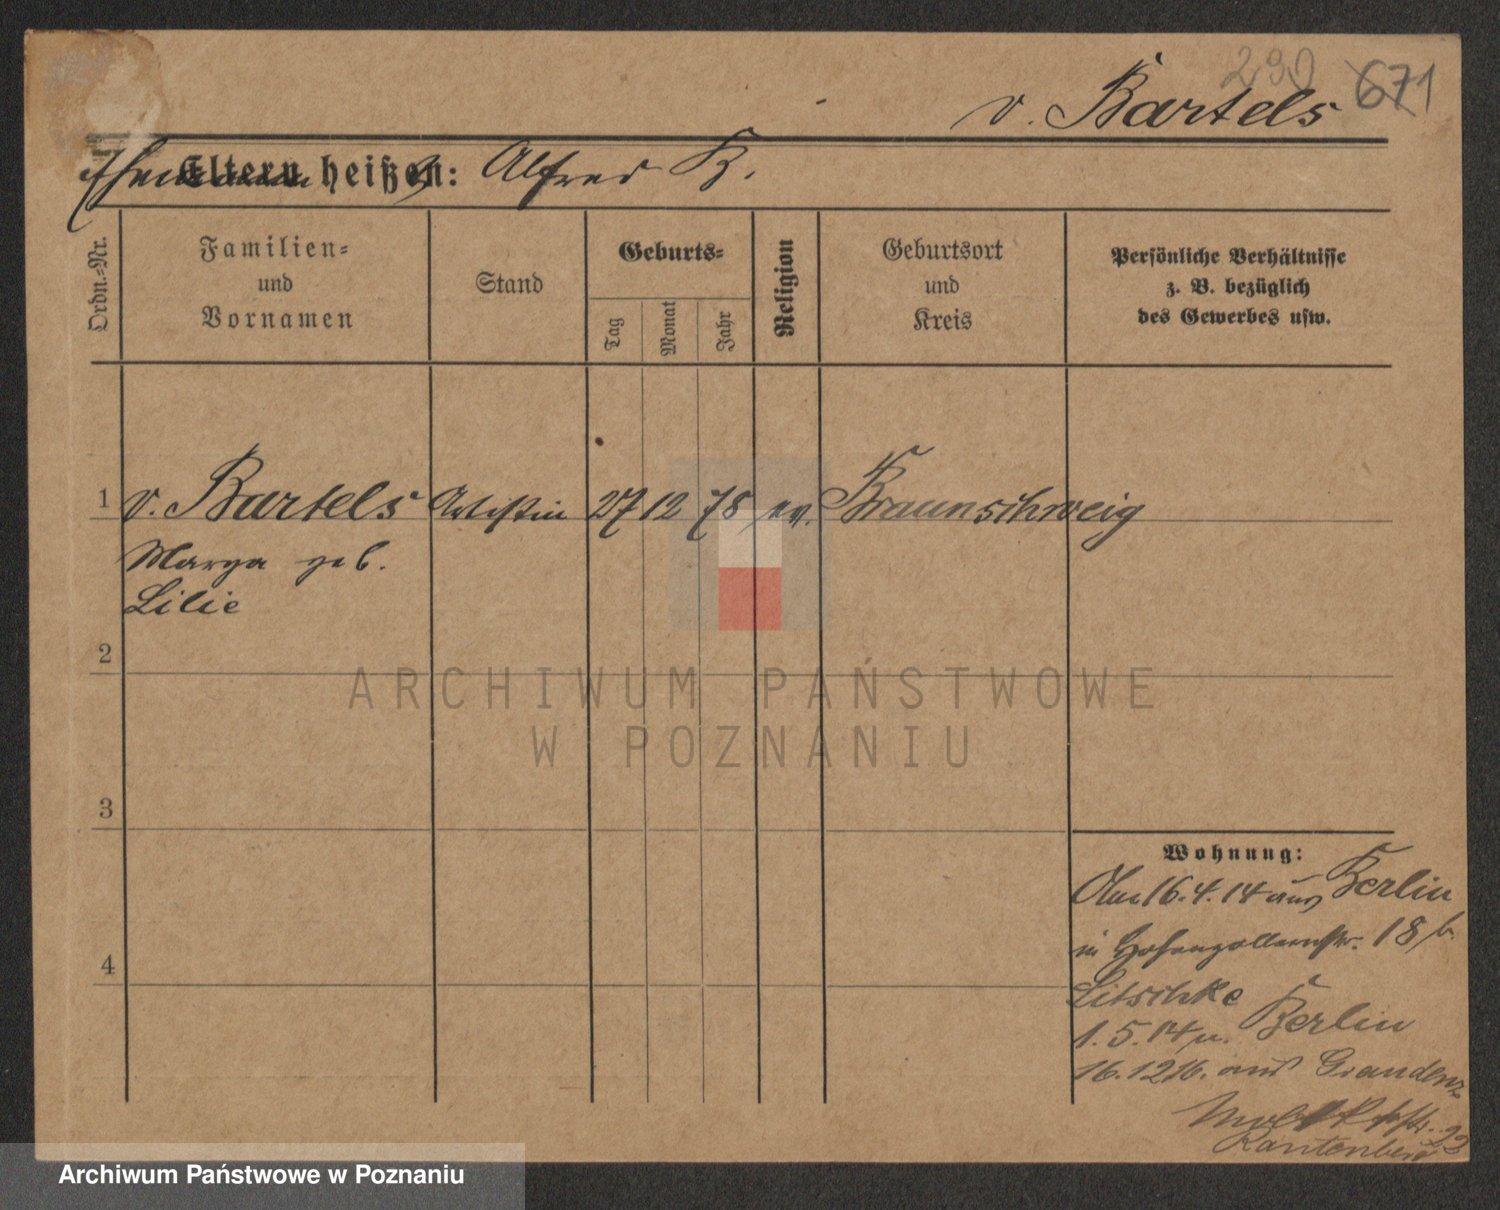 290 671
v. Bartels
Ehemann
Eltern heißen: Alfred B.
Ordn.-Nr.
Familien-
und
Vornamen
Stand
Geburts-
Tag
Monat
Jahr
Religion
Geburtsort
und
Kreis
Persönliche Verhältnisse
z. B. bezüglich
des Gewerbes usw.
1 v. Bartels Artistin 27 12 78 ev. Braunschweig
Marga geb.
Lilie
2
3
4
Wohnung:
Am 16.4.14 aus Berlin
in Hohenzollernstr. 18 b.
Litschke
1.5.14 n. Berlin
16.12.16. aus Graudenz
23
Rautenberg
ARCHIWUM PAŃSTWOWE
W POZNANIU
Archiwum Państwowe w Poznaniu